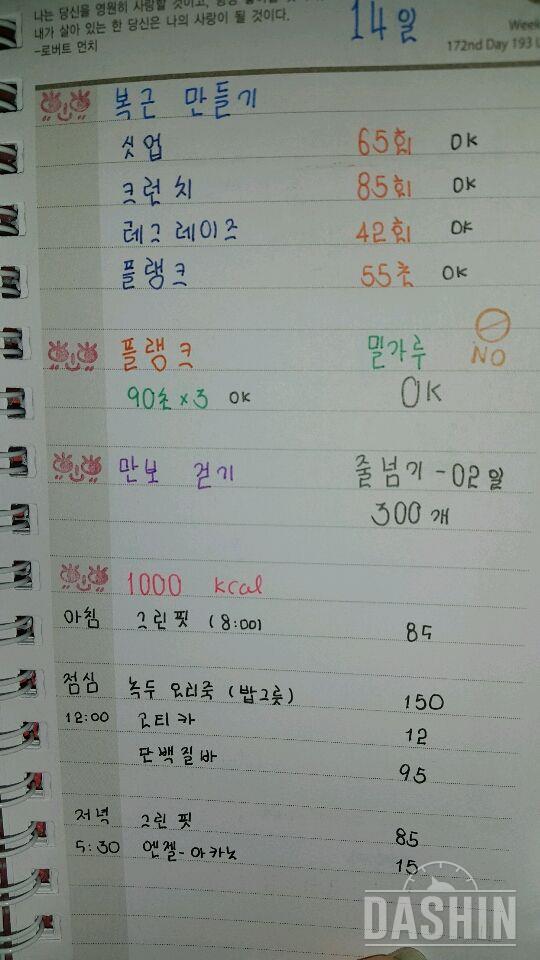 나는 당신을 영원히 사랑할 것이고,
내가 살아 있는 한 당신은 나의 사랑이 될 것이다.
-로버트 먼치
14일
Week
172nd Day 193
복근 만들기
싯업 65회 OK
크런치 85회 OK
레그레이즈 42회 OK
플랭크 55초 OK
플랭크 밀가루 NO
90초×3 OK OK
만보 걷기 줄넘기 - 02일
300개
1000 kcal
아침 그린핏 (8:00) 85
점심 녹두오리죽 (밥그릇) 150
12:00 고티카 12
단백질바 95
저녁 그린핏 85
5:30 엔젤-아카노 15
DASHIN